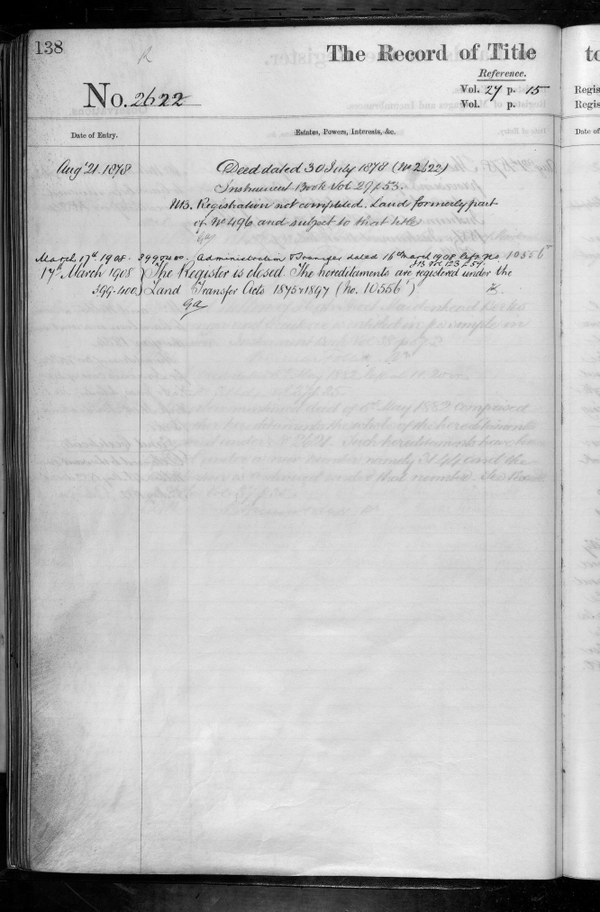 138
The Record of Title
to
Reference.
No. 2622
Vol. 27 p. 15
Vol. p.
Regis
Regis
Date of Entry.
Estates, Powers, Interests, &c.
Date of
Augt 21. 1878
Deed dated 30 July 1878 (No 2622)
Instrument Book Vol 29 p 53.
NB. Registration not completed. Land formerly part
of No 496 and subject to that title
March 17th 1908 - Administration & Transfer dated 16th March 1908 10556
17th March 1908
The Register is closed. The hereditaments are registered under the
399-400
Land Transfer Acts 1875 & 1897 (No. 10556)